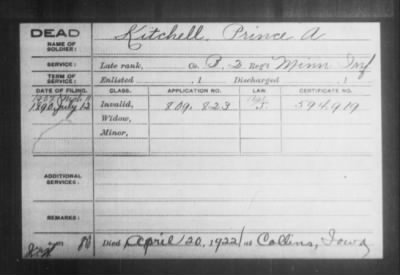 DEAD Kitchell, Prince A
NAME OF SOLDIER:
SERVICE: Late rank, Co. B, 2 Reg't Minn Inf
TERM OF SERVICE: Enlisted , 1 Discharged , 1
DATE OF FILING. CLASS. APPLICATION NO. LAW. CERTIFICATE NO.
1890, July 12 Invalid, 809,823 594,919
Widow,
Minor,
ADDITIONAL SERVICES:
REMARKS:
80 Died April 20, 1922, at Collins, Iowa